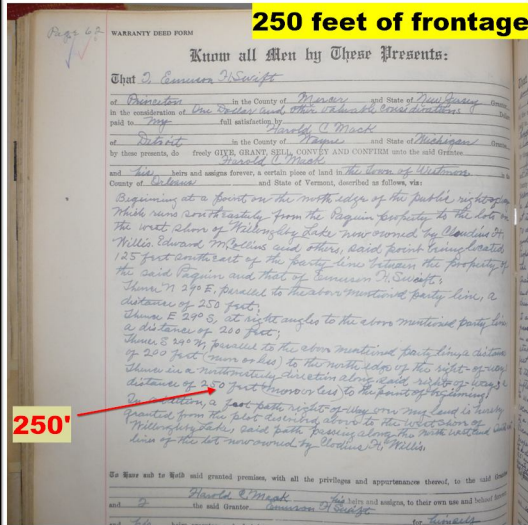 250 feet of frontage
Page 62
WARRANTY DEED FORM
Know all Men by These Presents:
That I, Emerson H. Swift
of Princeton in the County of Mercer and State of New Jersey
in the consideration of One Dollar and other valuable considerations
paid to my full satisfaction by
Harold C. Mack
of Detroit in the County of Wayne and State of Michigan
by these presents, do freely GIVE, GRANT, SELL, CONVEY AND CONFIRM unto the said Grantee
Harold C. Mack
and his heirs and assigns forever, a certain piece of land in the town of Westmore in the
County of Orleans and State of Vermont, described as follows, viz:
Beginning at a point on the north edge of the public right-of-way
which runs southeasterly from the Paquin property to the lots on
the west shore of Willoughby Lake now owned by Claudius H.
Willis, Edward M. Collins and others, said point being located
125 feet southeast of the party line between the property of
the said Paquin and that of Emerson H. Swift;
Thence N 29° E, parallel to the above mentioned party line, a
distance of 250 feet;
Thence E 29° S, at right angles to the above mentioned party line
a distance of 200 feet;
Thence parallel to the above mentioned party line, a distance
of 200 feet (more or less) to the north edge of the right-of-way;
Thence in a northwesterly direction along said right-of-way, a
distance of 250 feet (more or less) to the point of beginning.
250'
In addition, a foot path right-of-way over my land is hereby
granted from the plot described above to the west shore of
Willoughby Lake, said path passing along the north west and
lines of the lot now owned by Claudius H. Willis.
To Have and to Hold said granted premises, with all the privileges and appurtenances thereof, to the said Grantee
Harold C. Mack his heirs and assigns, to their own use and behoof forever
and I the said Grantor Emerson H. Swift
for